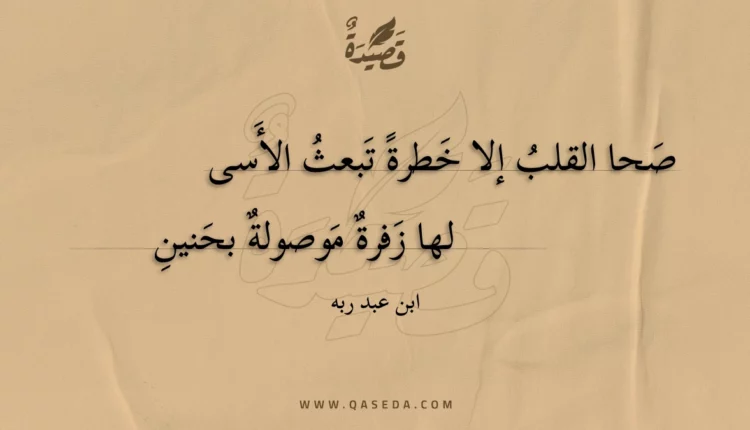 قَصِيدَةٌ
صَحا القلبُ إلا خَطرةً تَبعثُ الأَسى
لها زَفرةٌ مَوصولةٌ بحَنينِ
ابن عبد ربه
WWW.QASEDA.COM